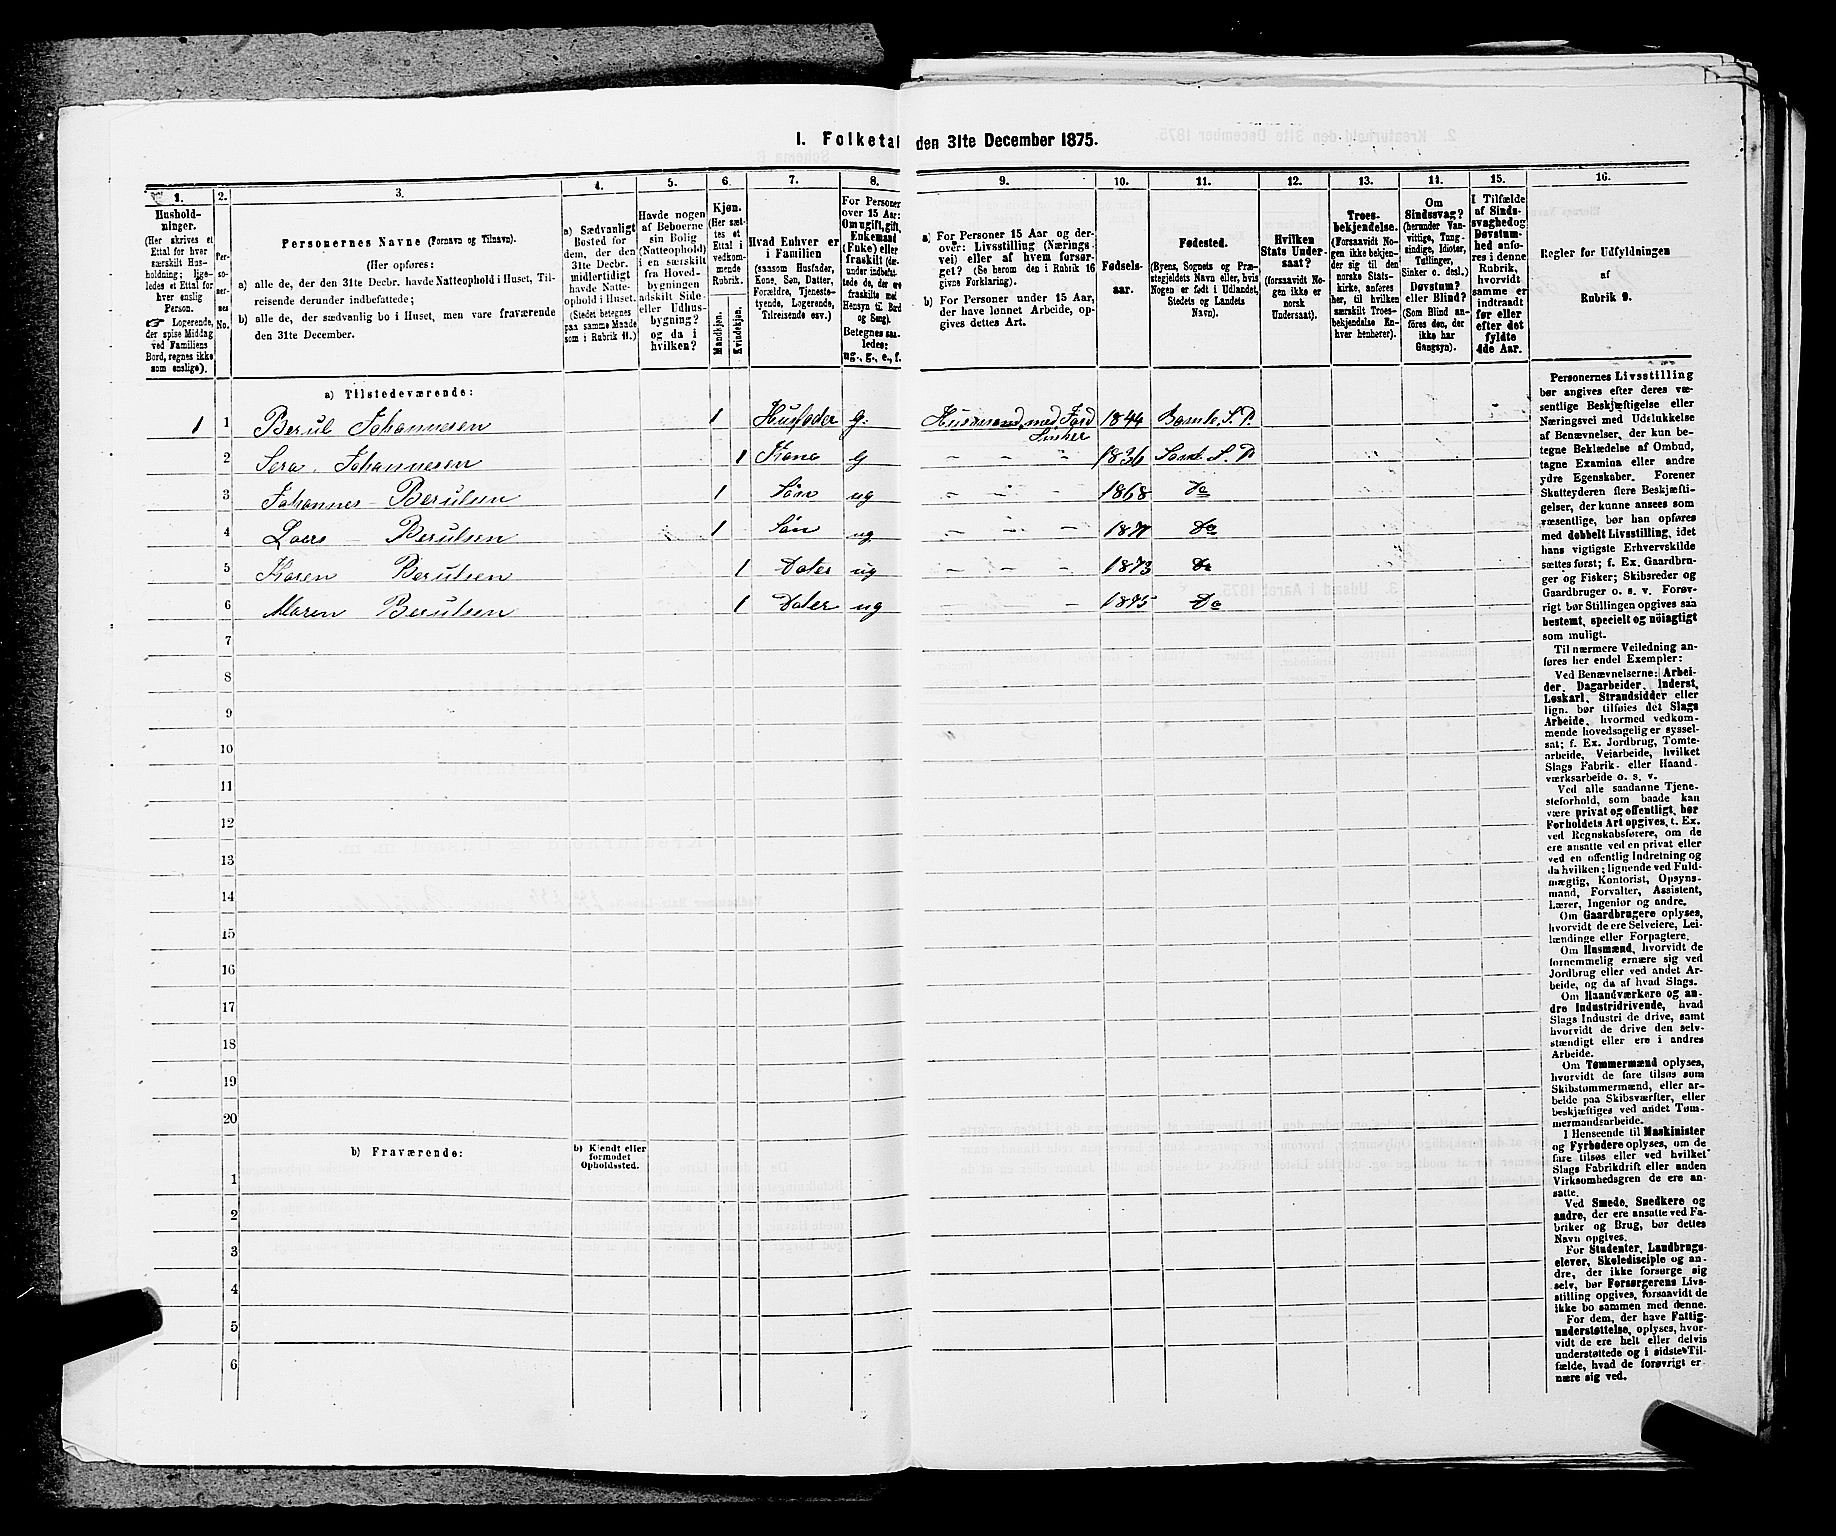 I. Folketal den 31te December 1875.
1.
2.
3.
4.
5.
6.
7.
8.
9.
10.
11.
12.
13.
14.
15.
16.
Hushold-
ninger.
(Her skrives et
Ettal for hver
særskilt Hus-
holdning; lige-
ledes et Ettal for
hver enslig
Person.
☞ Logerende,
der spise Middag
ved Familiens
Bord, regnes ikke
som enslige).
Per-
so-
ner-
nes
No.
Personernes Navne (Fornavn og Tilnavn).
(Her opføres:
a) alle de, der den 31te Decbr. havde Natteophold i Huset, Til-
reisende derunder indbefattede;
b) alle de, der sædvanlig bo i Huset, men vare fraværende
den 31te December.
a) Sædvanligt
Bosted for
dem, der den
31te Decbr.
midlertidigt
havde Natte-
ophold i Huset.
(Stedet betegnes
paa samme Maade
som i Rubrik 11.)
Havde nogen
af Beboerne
sin Bolig
(Natteophold)
i en særskilt
fra Hoved-
bygningen
adskilt Side-
eller Udhus-
bygning?
og da i
hvilken?
Kjøn.
(Her sæt-
tes et
Ettal i
vedkom-
mende
Rubrik.
Mandkjøn.
Kvindekjøn.
Hvad Enhver er
i Familien
(saasom Husfader,
Kone, Søn, Datter,
Forældre, Tjeneste-
tyende, Logerende,
Tilreisende osv.)
For Personer
over 15 Aar:
Om ugift, gift,
Enkemand
(Enke) eller
fraskilt (der-
under indbefat-
tede de, der ere
fraskilte med
Hensyn til Bord
og Seng).
Betegnes saa-
ledes:
ug., g., e., f.
a) For Personer over 15 Aar og der-
over: Livsstilling (Nærings-
vei) eller af hvem forsør-
get? (Se herom den i Rubrik 16
givne Forklaring).
b) For Personer under 15 Aar,
der have lønnet Arbeide, op-
gives dettes Art.
Fødsels-
aar.
Fødested.
(Byens, Sognets og Præ-
stegjeldets Navn eller, hvis
Nogen er født i Udlandet,
Stedets og Landets
Navn).
Hvilken
Stats Under-
saat?
(forsaavidt No-
gen ikke er
norsk
Undersaat).
Troes-
bekjendelse.
(Forsaavidt No-
gen ikke bekjen-
der sig til den
norske Stats-
kirke, anføres
her, til hvilken
særskilt Troes-
bekjendelse En-
hver henhører).
Om
Sindssvag?
(herunder Van-
vittige, Tung-
sindige, Idioter,
Tullinger,
Sinker o. desl.)
Døvstum?
eller Blind?
(Som Blind an-
føres den, der
ikke har
Gangsyn).
I Tilfælde
af Sinds-
svaghed og
Døvstum-
hed anfø-
res i denne
Rubrik,
hvorvidt
samme er
indtraadt
før eller
efter det
fyldte
4de Aar.
Regler for Udfyldningen
af
Rubrik 9.
a) Tilstedeværende:
1 1 Berul Johannesen 1 Husfader g. Husmand med Jord 1844 Bamle S. P.
2 Sera Johannesen 1 Kone g – – – 1836 Samt. S. P
3 Johannes Berulsen 1 Søn ug – – – 1868 Do
4 Lars Berulsen 1 Søn ug – – – 1871 Do
5 Karen Berulsen 1 Dater ug – – – 1873 Do
6 Maren Berulsen 1 Dater ug – – – 1875 Do
7
8
9
10
11
12
13
14
15
16
17
18
19
20
b) Fraværende:
b) Kjendt eller
formodet
Opholdssted.
1
2
3
4
5
6
Personernes Livsstilling
bør angives efter deres væ-
sentlige Beskjæftigelse eller
Næringsvei med Udelukkelse
af Benævnelser, der kun be-
tegne Beklædelse af Ombud,
tagne Examina eller andre
ydre Egenskaber. Forener
Skatteyderen flere Beskjæfti-
gelser, der kunne ansees som
væsentlige, bør han opføres
med dobbelt Livsstilling, idet
hans vigtigste Erhvervskilde
sættes først; f. Ex. Gaardbru-
ger og Fisker; Skibsreder og
Gaardbruger o. s. v. Forøv-
rigt bør Stillingen opgives saa
bestemt, specielt og nöiagtigt
som muligt.
Til nærmere Veiledning an-
føres her endel Exempler:
Ved Benævnelserne: Arbei-
der, Dagarbeider, Inderst,
Løskarl, Strandsidder eller
lign. bør tilføies det Slags
Arbeide, hvormed vedkom-
mende hovedsagelig er syssel-
sat; f. Ex. Jordbrug, Tomte-
arbeide, Veiarbeide, hvilket
Slags Fabrik- eller Haand-
værksarbeide o. s. v.
Ved alle saadanne Tjene-
steforhold, som baade kan
være privat og offentligt, bør
Forholdets Art opgives, t. Ex.
ved Regnskabsførere, om de
ere ansatte ved en privat eller
ved en offentlig Indretning og
da hvilken; lignende ved Fuld-
mægtig, Kontorist, Opsyns-
mand, Forvalter, Assistent,
Lærer, Ingeniør og andre.
Om Gaardbrugere oplyses,
hvorvidt de ere Selveiere, Lei-
lændinge eller Forpagtere.
Om Husmænd, hvorvidt de
fornemmelig ernære sig ved
Jordbrug eller ved andet Ar-
beide, og da af hvad Slags.
Om Haandværkere og an-
dre Industridrivende, hvad
Slags Industri de drive, samt
hvorvidt de drive den selv-
stændigt eller ere i andres
Arbeide.
Om Tømmermænd oplyses,
hvorvidt de fare tilsøs som
Skibstømmermænd, eller ar-
beide paa Skibsværfter, eller
beskjæftiges ved andet Tøm-
mermandsarbeide.
I Henseende til Maskinister
og Fyrbødere oplyses, om de
fare tilsøs eller ved hvilket
Slags Fabrikdrift eller anden
Virksomhedsgren de ere an-
satte.
Ved Smede, Snedkere og
andre, der ere ansatte ved Fa-
briker og Brug, bør dettes
Navn opgives.
For Studenter, Landbrugs-
elever, Skoledisciple og an-
dre, der ikke forsørge sig
selv, bør Forsørgerens Livs-
stilling opgives, forsaavidt de
ikke bo sammen med denne.
For dem, der have Fattig-
understøttelse, oplyses, hvor-
vidt de ere helt eller delvis
understøttede og i sidste Til-
fælde, hvad de forøvrigt er-
nære sig ved.